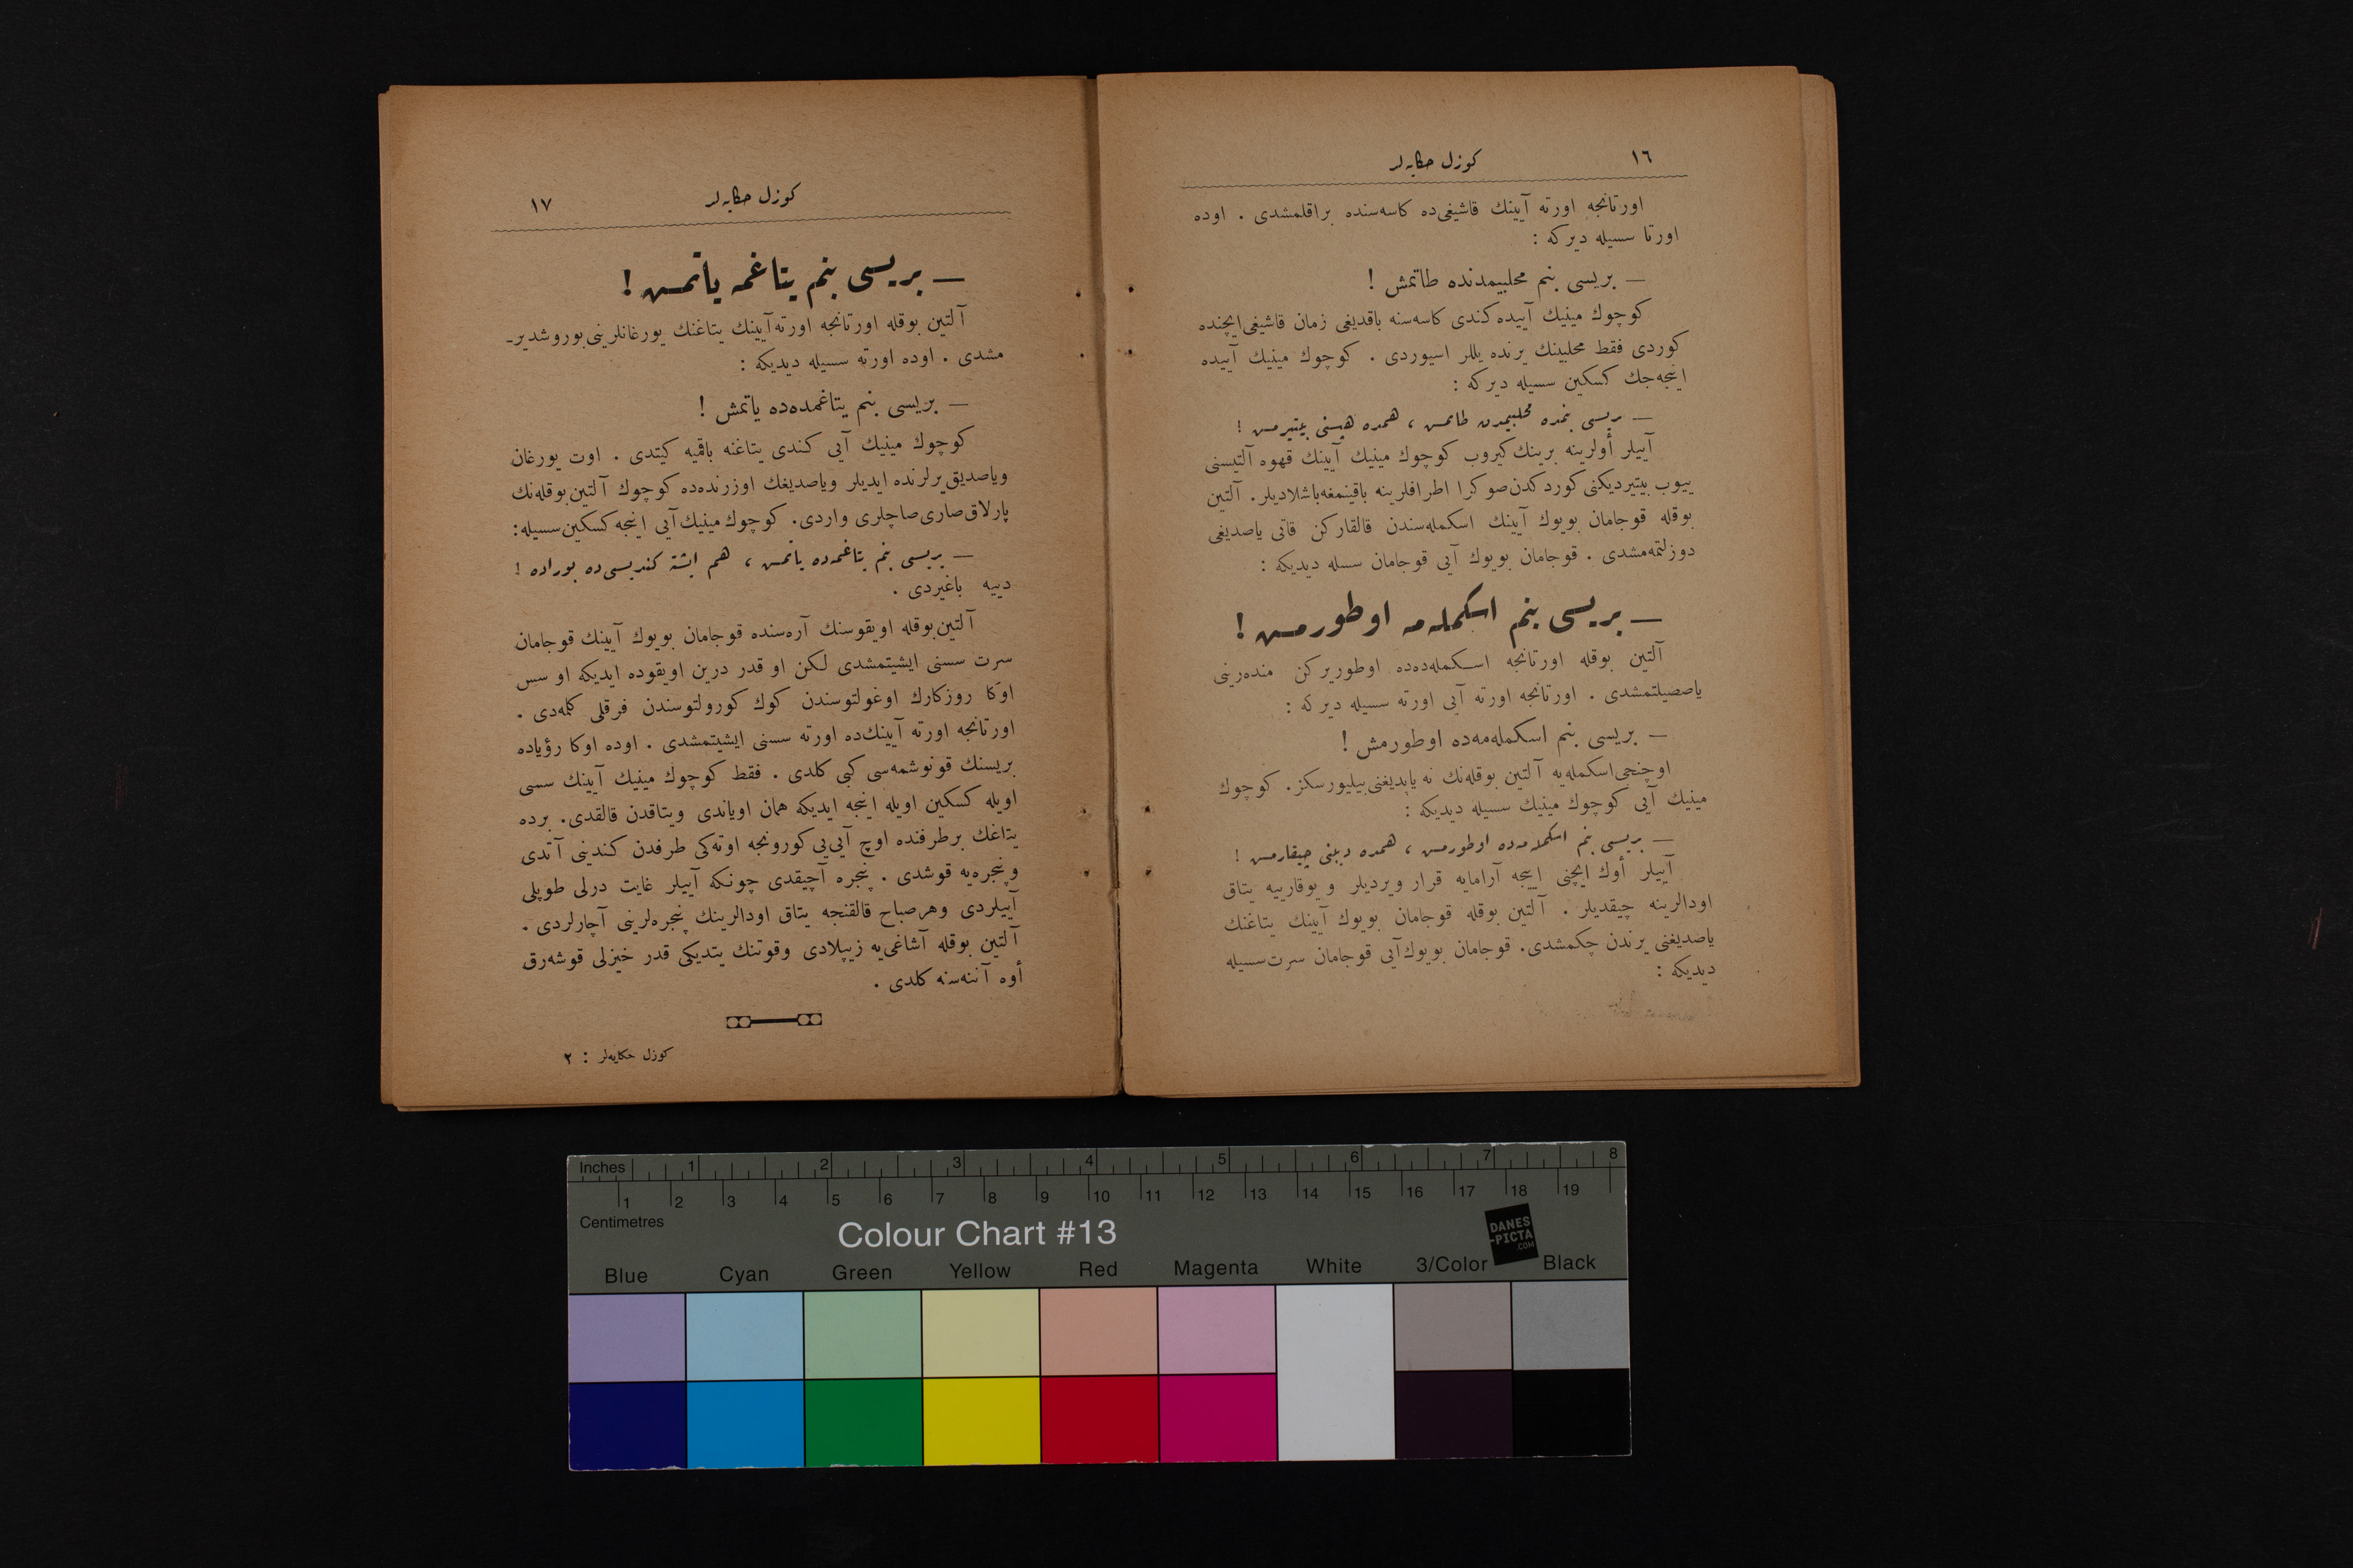 ١٦
كوزل حكايه‌لر
اورتانجه اورته آیینك قاشیغی‌ده كاسه‌سنده براقلمشدی . اوده
اورتا سسیله دیركه :
— بریسی بنم محلبیمدنده طاتمش !
كوچوك مینیك آییده كندی كاسه‌سنه باقدیغی زمان قاشیغی ایچنده
كوردی فقط محلبینك یرنده یللر اسیوردی . كوچوك مینیك آییده
اینجه‌جك كسكین سسیله دیركه :
— بریسی بنمده محلبیمدن طاتمش ، همده هپسنی بیتیرمش !
آییلر أولرینه برینك كیروب كوچوك مینیك آیینك قهوه آلتیسنی
ییوب بیتیردیكنی كوردكدن صوكرا اطرافلرینه باقینمغه باشلادیلر. آلتین
بوقله قوجامان بویوك آیینك اسكمله‌سندن قالقاركن قاتی یاصدیغی
دوزلتمه‌مشدی . قوجامان بویوك آیی قوجامان سسله دیدیكه :
— بریسی بنم اسكمله‌مه اوطورمش !
آلتین بوقله اورتانجه اسكمله‌ده‌ده اوطوریركن منده‌رینی
یاصصیلتمشدی . اورتانجه اورته آیی اورته سسیله دیركه :
— بریسی بنم اسكمله‌مه‌ده اوطورمش !
اوچنجی اسكمله‌یه آلتین بوقله‌نك نه یاپدیغنی بیلیورسكز. كوچوك
مینیك آیی كوچوك مینیك سسیله دیدیكه :
— بریسی بنم اسكمله‌مه‌ده اوطورمش ، همده دیبنی چیقارمش !
آییلر أوك ایچنی اییجه آرامایه قرار ویردیلر و یوقارییه یتاق
اودالرینه چیقدیلر . آلتین بوقله قوجامان بویوك آیینك یتاغنك
یاصدیغنی یرندن چكمشدی. قوجامان بویوك آیی قوجامان سرت سسیله
دیدیكه :
كوزل حكايه‌لر
١٧
— بریسی بنم یتاغمه یاتمش !
آلتین بوقله اورتانجه اورته آیینك یتاغنك یورغانلرینی بوروشدیر-
مشدی . اوده اورته سسیله دیدیكه :
— بریسی بنم یتاغمده‌ده یاتمش !
كوچوك مینیك آیی كندی یتاغنه باقمیه كیتدی . اوت یورغان
ویاصدیق یرلرنده ایدیلر ویاصدیغك اوزرنده‌ده كوچوك آلتین بوقله‌نك
پارلاق صاری صاچلری واردی. كوچوك مینیك آیی اینجه كسكین سسیله:
— بریسی بنم یتاغمه‌ده یاتمش ، هم ایشته كندیسی‌ده بوراده !
دییه باغیردی .
آلتین بوقله اویقوسنك آره‌سنده قوجامان بویوك آیینك قوجامان
سرت سسنی ایشیتمشدی لكن او قدر درین اویقوده ایدیكه او سس
اوكا روزكارك اوغولتوسندن كوك كورولتوسندن فرقلی كلمه‌دی .
اورتانجه اورته آیینك‌ده اورته سسنی ایشیتمشدی . اوده اوكا رؤیاده
بریسنك قونوشمه‌سی كبی كلدی . فقط كوچوك مینیك آیینك سسی
اویله كسكین اویله اینجه ایدیكه همان اویاندی ویتاقدن قالقدی. برده
یتاغك برطرفنده اوچ آیی‌یی كورونجه اوته‌كی طرفدن كندینی آتدی
وپنجره‌یه قوشدی . پنجره آچیقدی چونكه آییلر غایت درلی طوپلی
آییلردی وهرصباح قالقنجه یتاق اودالرینك پنجره‌لرینی آچارلردی .
آلتین بوقله آشاغی‌یه زیپلادی وقوتنك یتدیكی قدر خیزلی قوشه‌رق
أوه آننه‌سنه كلدی .
كوزل حكایه‌لر : ٢
Inches 1 2 3 4 5 6 7 8
1 2 3 4 5 6 7 8 9 10 11 12 13 14 15 16 17 18 19
Centimetres
Colour Chart #13
DANES
-PICTA
.COM
Blue Cyan Green Yellow Red Magenta White 3/Color Black